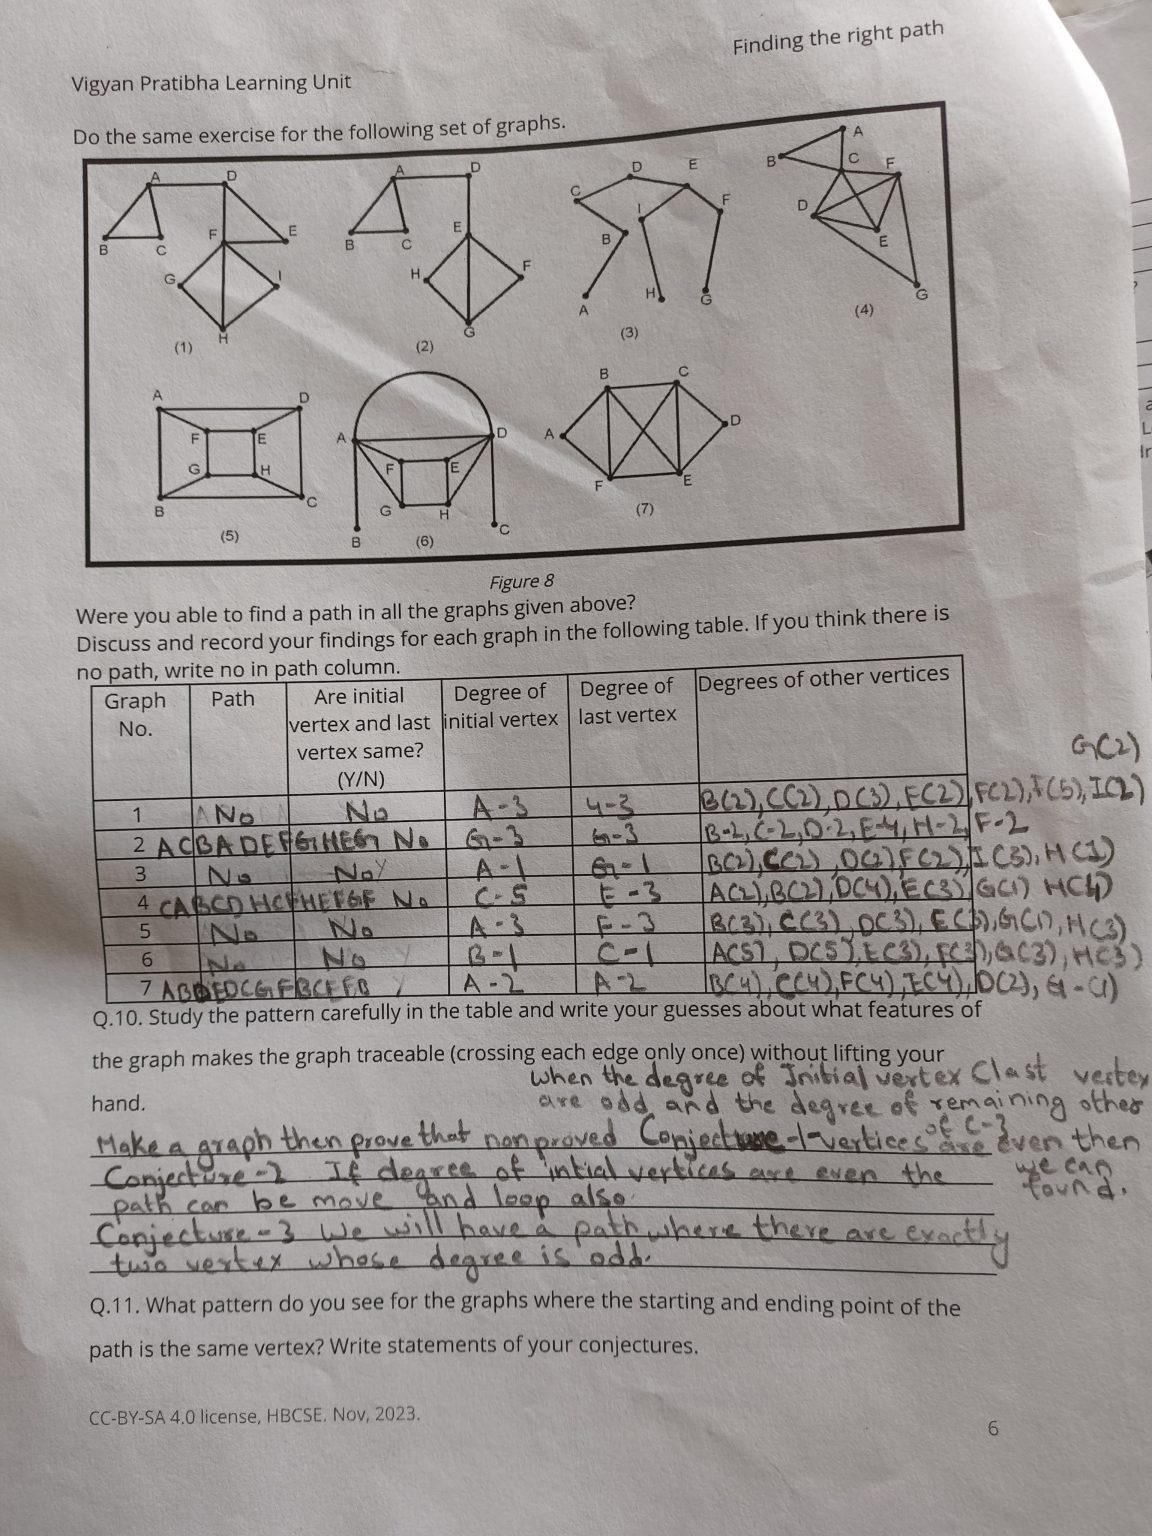 Finding the right path
Vigyan Pratibha Learning Unit
Do the same exercise for the following set of graphs.
A D B C F E G I H (1)
A D B C E H F G (2)
D E C I F B H G A (3)
A B C F D E G (4)
A D F E G H B C (5)
A D F E G H B C (6)
B C A D F E (7)
Figure 8
Were you able to find a path in all the graphs given above?
Discuss and record your findings for each graph in the following table. If you think there is
no path, write no in path column.
Graph No. Path Are initial vertex and last vertex same? (Y/N) Degree of initial vertex Degree of last vertex Degrees of other vertices
G(2)
1 No No A-3 4-3 B(2), C(2), D(3), E(2), F(2), F(5), I(2)
2 ACBADEFGHEG No G-3 G-3 B-2, C-2, D-2, E-4, H-2, F-2
3 No No Y A-1 G-1 B(2), C(2), D(2) F(2), I(3), H(1)
4 CABCD HCFHEFGF No C-5 E-3 A(2), B(2), D(4), E(3), G(1) H(4)
5 No No A-3 F-3 B(3), C(3), D(3), E(3), G(1), H(3)
6 No No Y B-1 C-1 A(5), D(5), E(3), F(3), G(3), H(3)
7 Y A-2 A-2 B(4), C(4), F(4), E(4), D(2), G-(1)
Q.10. Study the pattern carefully in the table and write your guesses about what features of
the graph makes the graph traceable (crossing each edge only once) without lifting your
hand.
when the degree of Initial vertex Clast vertex
are odd and the degree of remaining other
of C-3
Make a graph then prove that non proved Conjecture-1-vertices are even then
we can
found.
Conjecture-2 If degree of intial vertices are even the
path can be move and loop also
Conjecture-3 We will have a path where there are exactly
two vertex whose degree is odd.
Q.11. What pattern do you see for the graphs where the starting and ending point of the
path is the same vertex? Write statements of your conjectures.
CC-BY-SA 4.0 license, HBCSE. Nov, 2023.
6